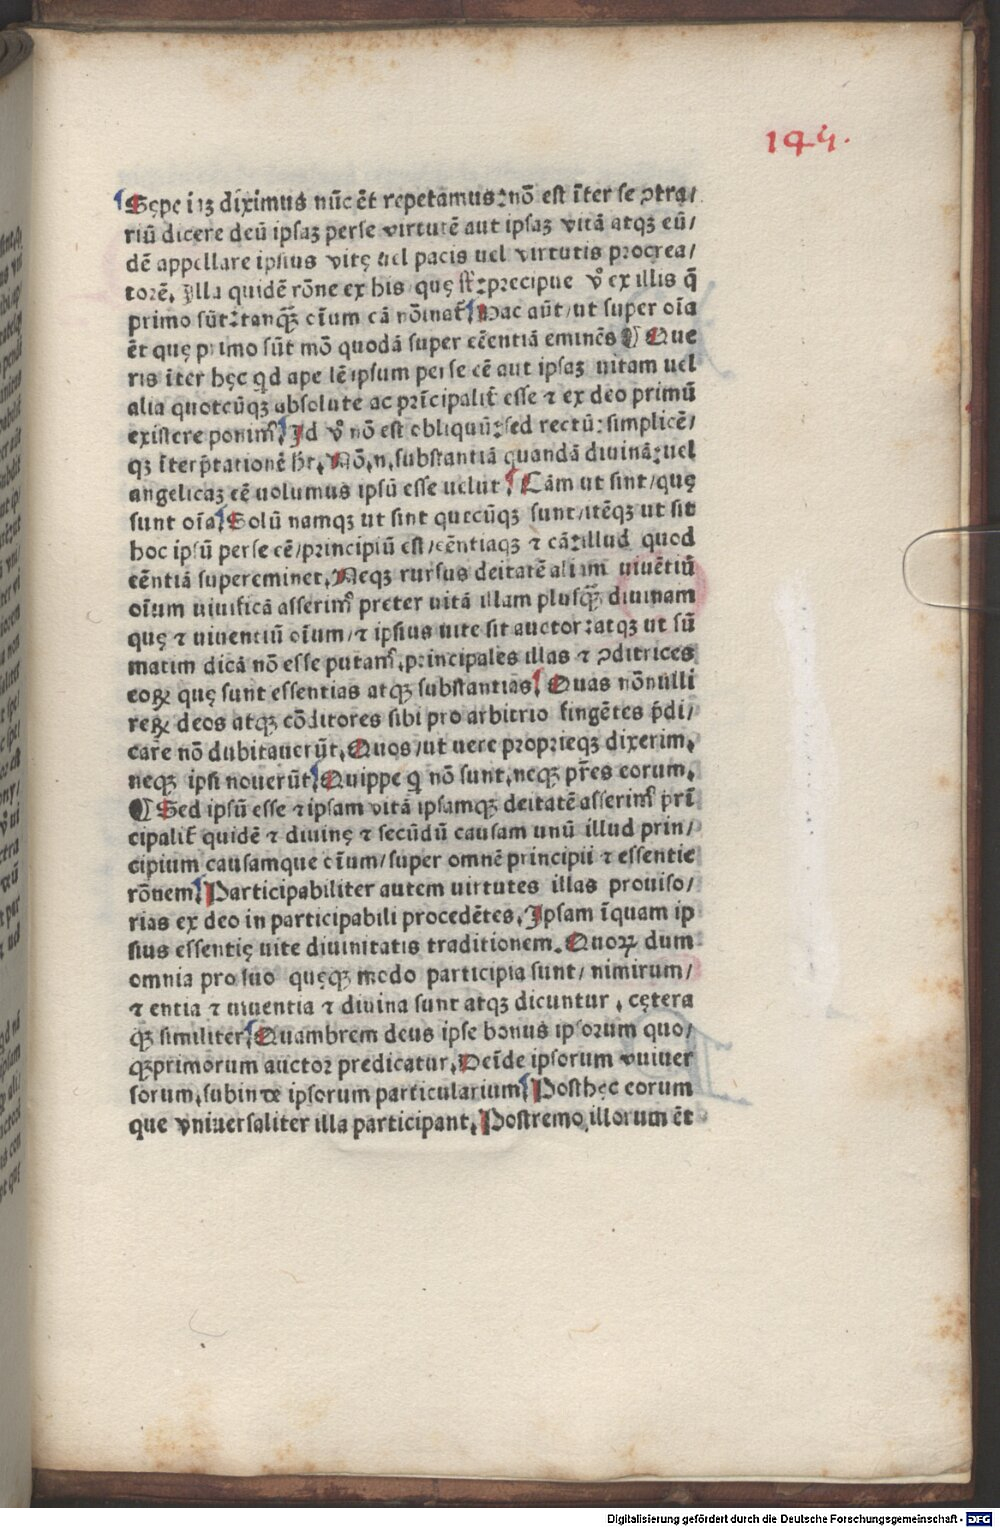 145.
Sępe iaꝫ diximus nūc ēt repetamus: nō est īter se ꝯtra/
riū dicere deū ipsaꝫ perse virtutē aut ipsaꝫ vitā atqꝫ eū/
dē appellare ipsius vitę uel pacis uel virtutis procrea/
torē. Illa quidē rōne ex his quę st̄: precipue v̊ ex illis q̄
primo sūt: tanqꝫ oīum cā nōinat᷑. Hac aūt/ ut super oīa
ēt quę primo sūt mō quodā super eēentiā eminēs ¶ Que
ris īter hęc qd ape lē ipsum perse eē aut ipsaꝫ uitam uel
alia quotcūqꝫ absolute ac prīcipalit᷑ esse ⁊ ex deo primū
existere ponim᷒. Id v̊ nō est obliquū: sed rectū: simplicē/
qꝫ īterp̄tationē hꝫ. Nō.n. substantiā quandā diuinā: uel
angelicaꝫ eē uolumus ipsū esse uelut Cām ut sint/ quę
sunt oīa. Solū namqꝫ ut sint quecūqꝫ sunt/ itēqꝫ ut sit
hoc ipsū perse eē/ principiū est/ eēntiaqꝫ ⁊ cā: illud quod
eēntiā supereminet. Neqꝫ rursus deitatē aliam uiuētiū
oīum uiuificā asserim᷒ preter uitā illam plusqꝫ diuinam
quę ⁊ uiuentiū oīum/ ⁊ ipsius uite sit auctor: atqꝫ ut sū
matim dicā nō esse putam᷒. principales illas ⁊ ꝯditrices
eoꝝ quę sunt essentias atqꝫ substantias. Quas nōnulli
reꝝ deos atqꝫ cōditores sibi pro arbitrio fingētes p̄di/
care nō dubitauerūt. Quos/ ut uere proprieqꝫ dixerim.
neqꝫ ipsi nouerūt. Quippe q nō sunt. neqꝫ pr̄es eorum.
¶ Sed ipsū esse ⁊ ipsam vitā ipsamqꝫ deitatē asserim᷒ prī
cipalit᷑ quidē ⁊ diuinę ⁊ secūdū causam unū illud prin/
cipium causamque oīum/ super omnē principii ⁊ essentie
rōnem. Participabiliter autem uirtutes illas prouiso/
rias ex deo in participabili procedētes. Ipsam īquam ip
sius essentię uite diuinitatis traditionem. Quoꝝ dum
omnia pro suo quęqꝫ modo participia sunt/ nimirum/
⁊ entia ⁊ uiuentia ⁊ diuina sunt atqꝫ dicuntur. cętera
qꝫ similiter. Quambrem deus ipse bonus ipsorum quo/
qꝫ primorum auctor predicatur. Deīde ipsorum vniuer
sorum. subinde ipsorum particularium. Posthęc eorum
que vniuersaliter illa participant. Postremo illorum ēt
Digitalisierung gefördert durch die Deutsche Forschungsgemeinschaft - DFG